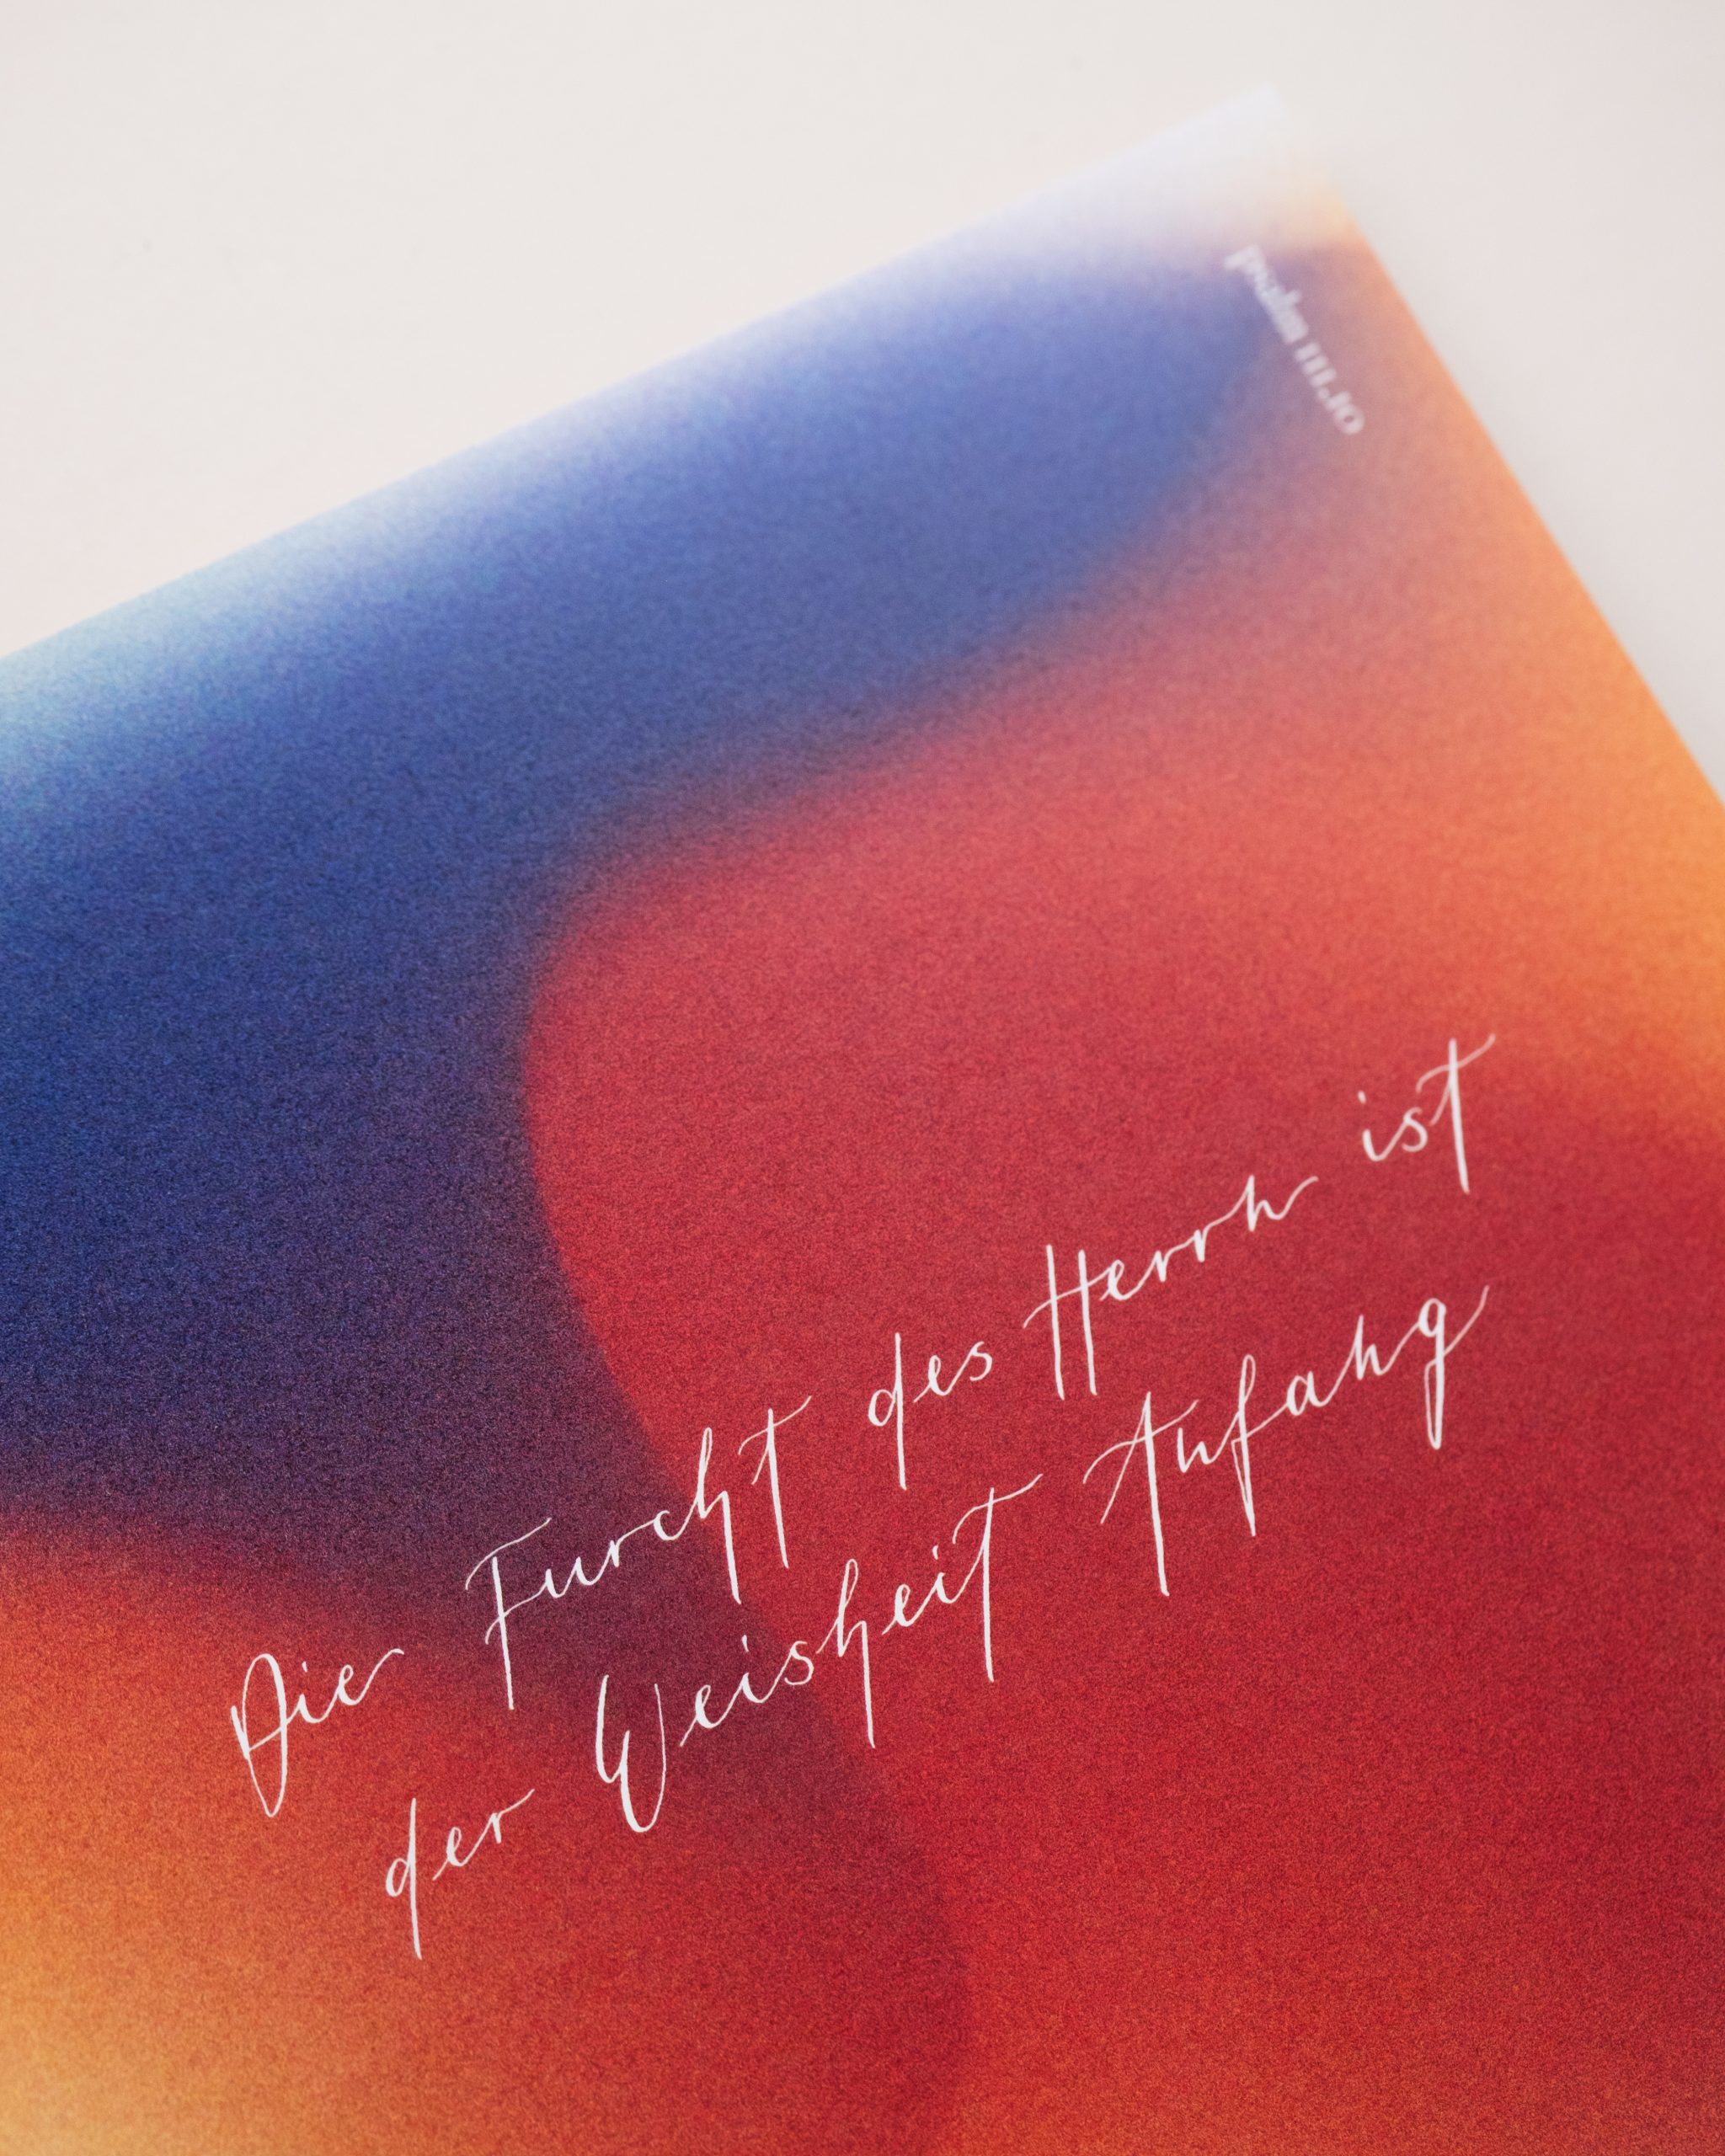 psalm 111.10
Die Furcht des Herrn ist
der Weisheit Anfang